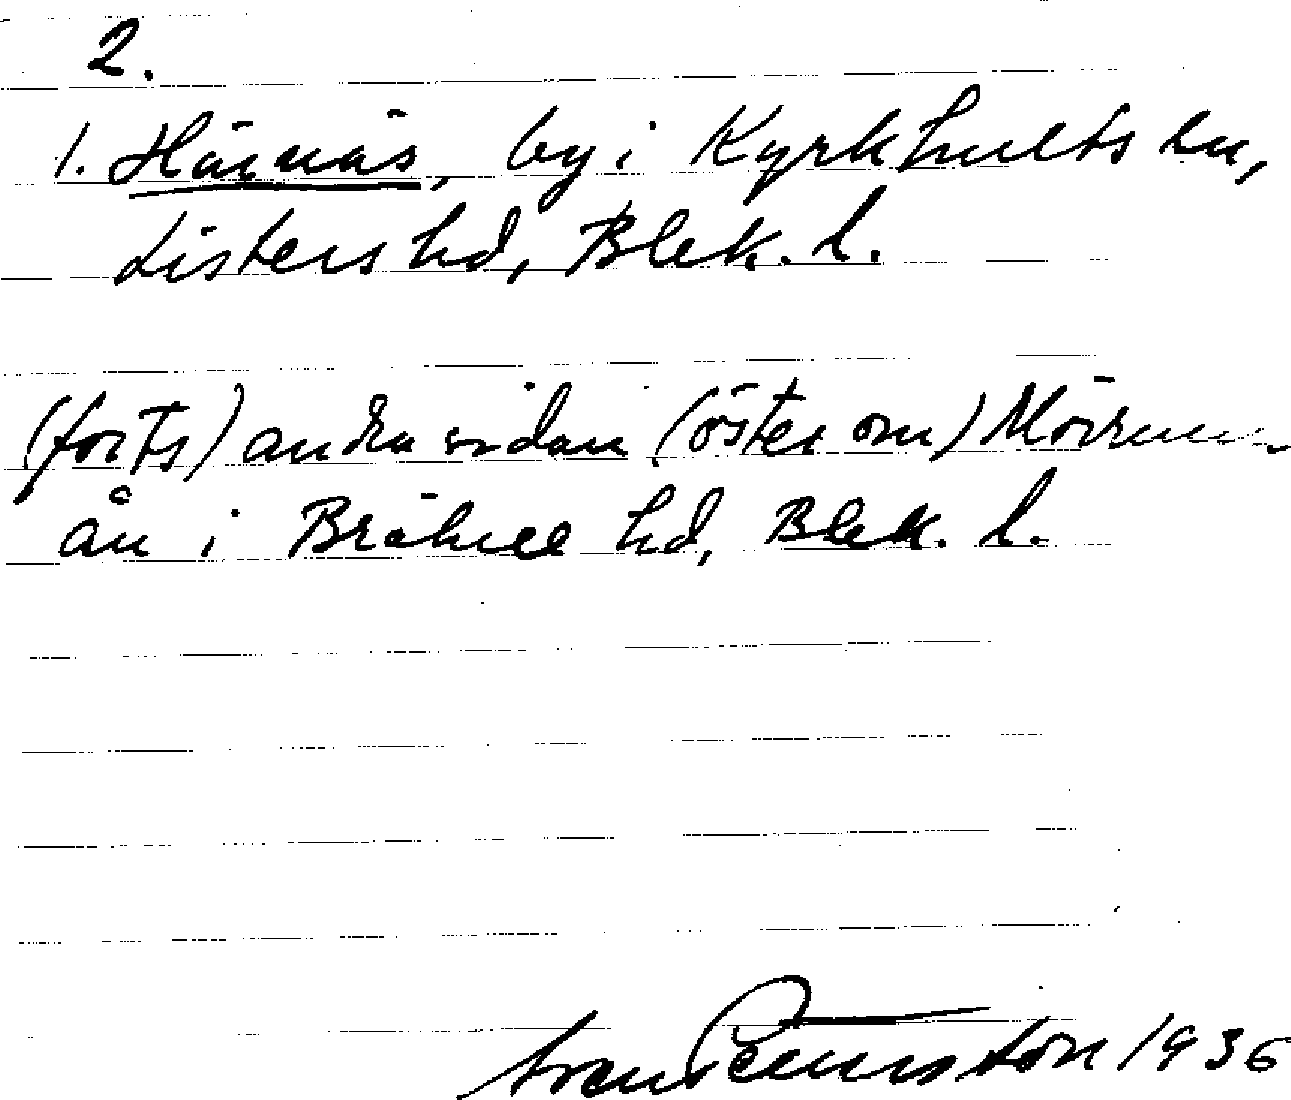 2.
1. Härnäs, by i Kyrkhults sn,
Listers hd, Blek. l.
(forts) andra sidan (öster om) Mörrums-
ån i Bräkne hd, Blek. l.
1936